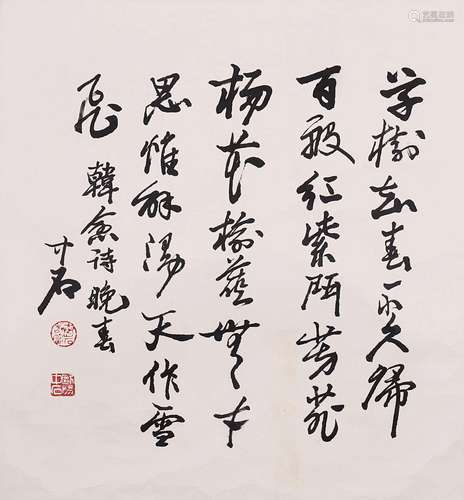 草樹知春不久歸
百般红紫鬥芳菲
杨花榆莢無才
思惟解漫天作雪
飛
韓愈詩晚春